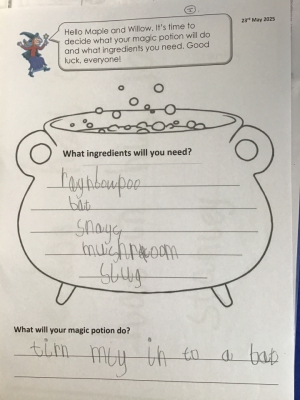 Hello Maple and Willow. It's time to
decide what your magic potion will do
and what ingredients you need. Good
luck, everyone!
23rd May 2025
What ingredients will you need?
raghboupoo
bat
snayg
muchroom
slug
What will your magic potion do?
tirn mey in to a bat